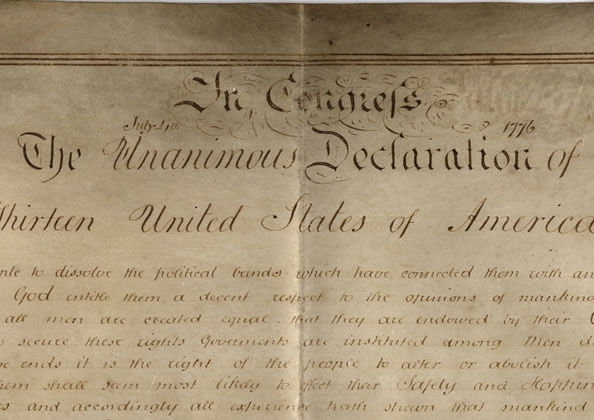 In Congress
July 4th 1776
The Unanimous Declaration of
Thirteen United States of America
to dissolve the political bands which have connected them with an
God entitle them a decent respect to the opinions of mankind
all men are created equal. that they are endowed by their
secure these rights Goverments are instituted among men
ends it is the right of the people to alter or abolish it
shall seem most likely to effect their Safety and Happin
and accordingly all experience hath shewn that mankind